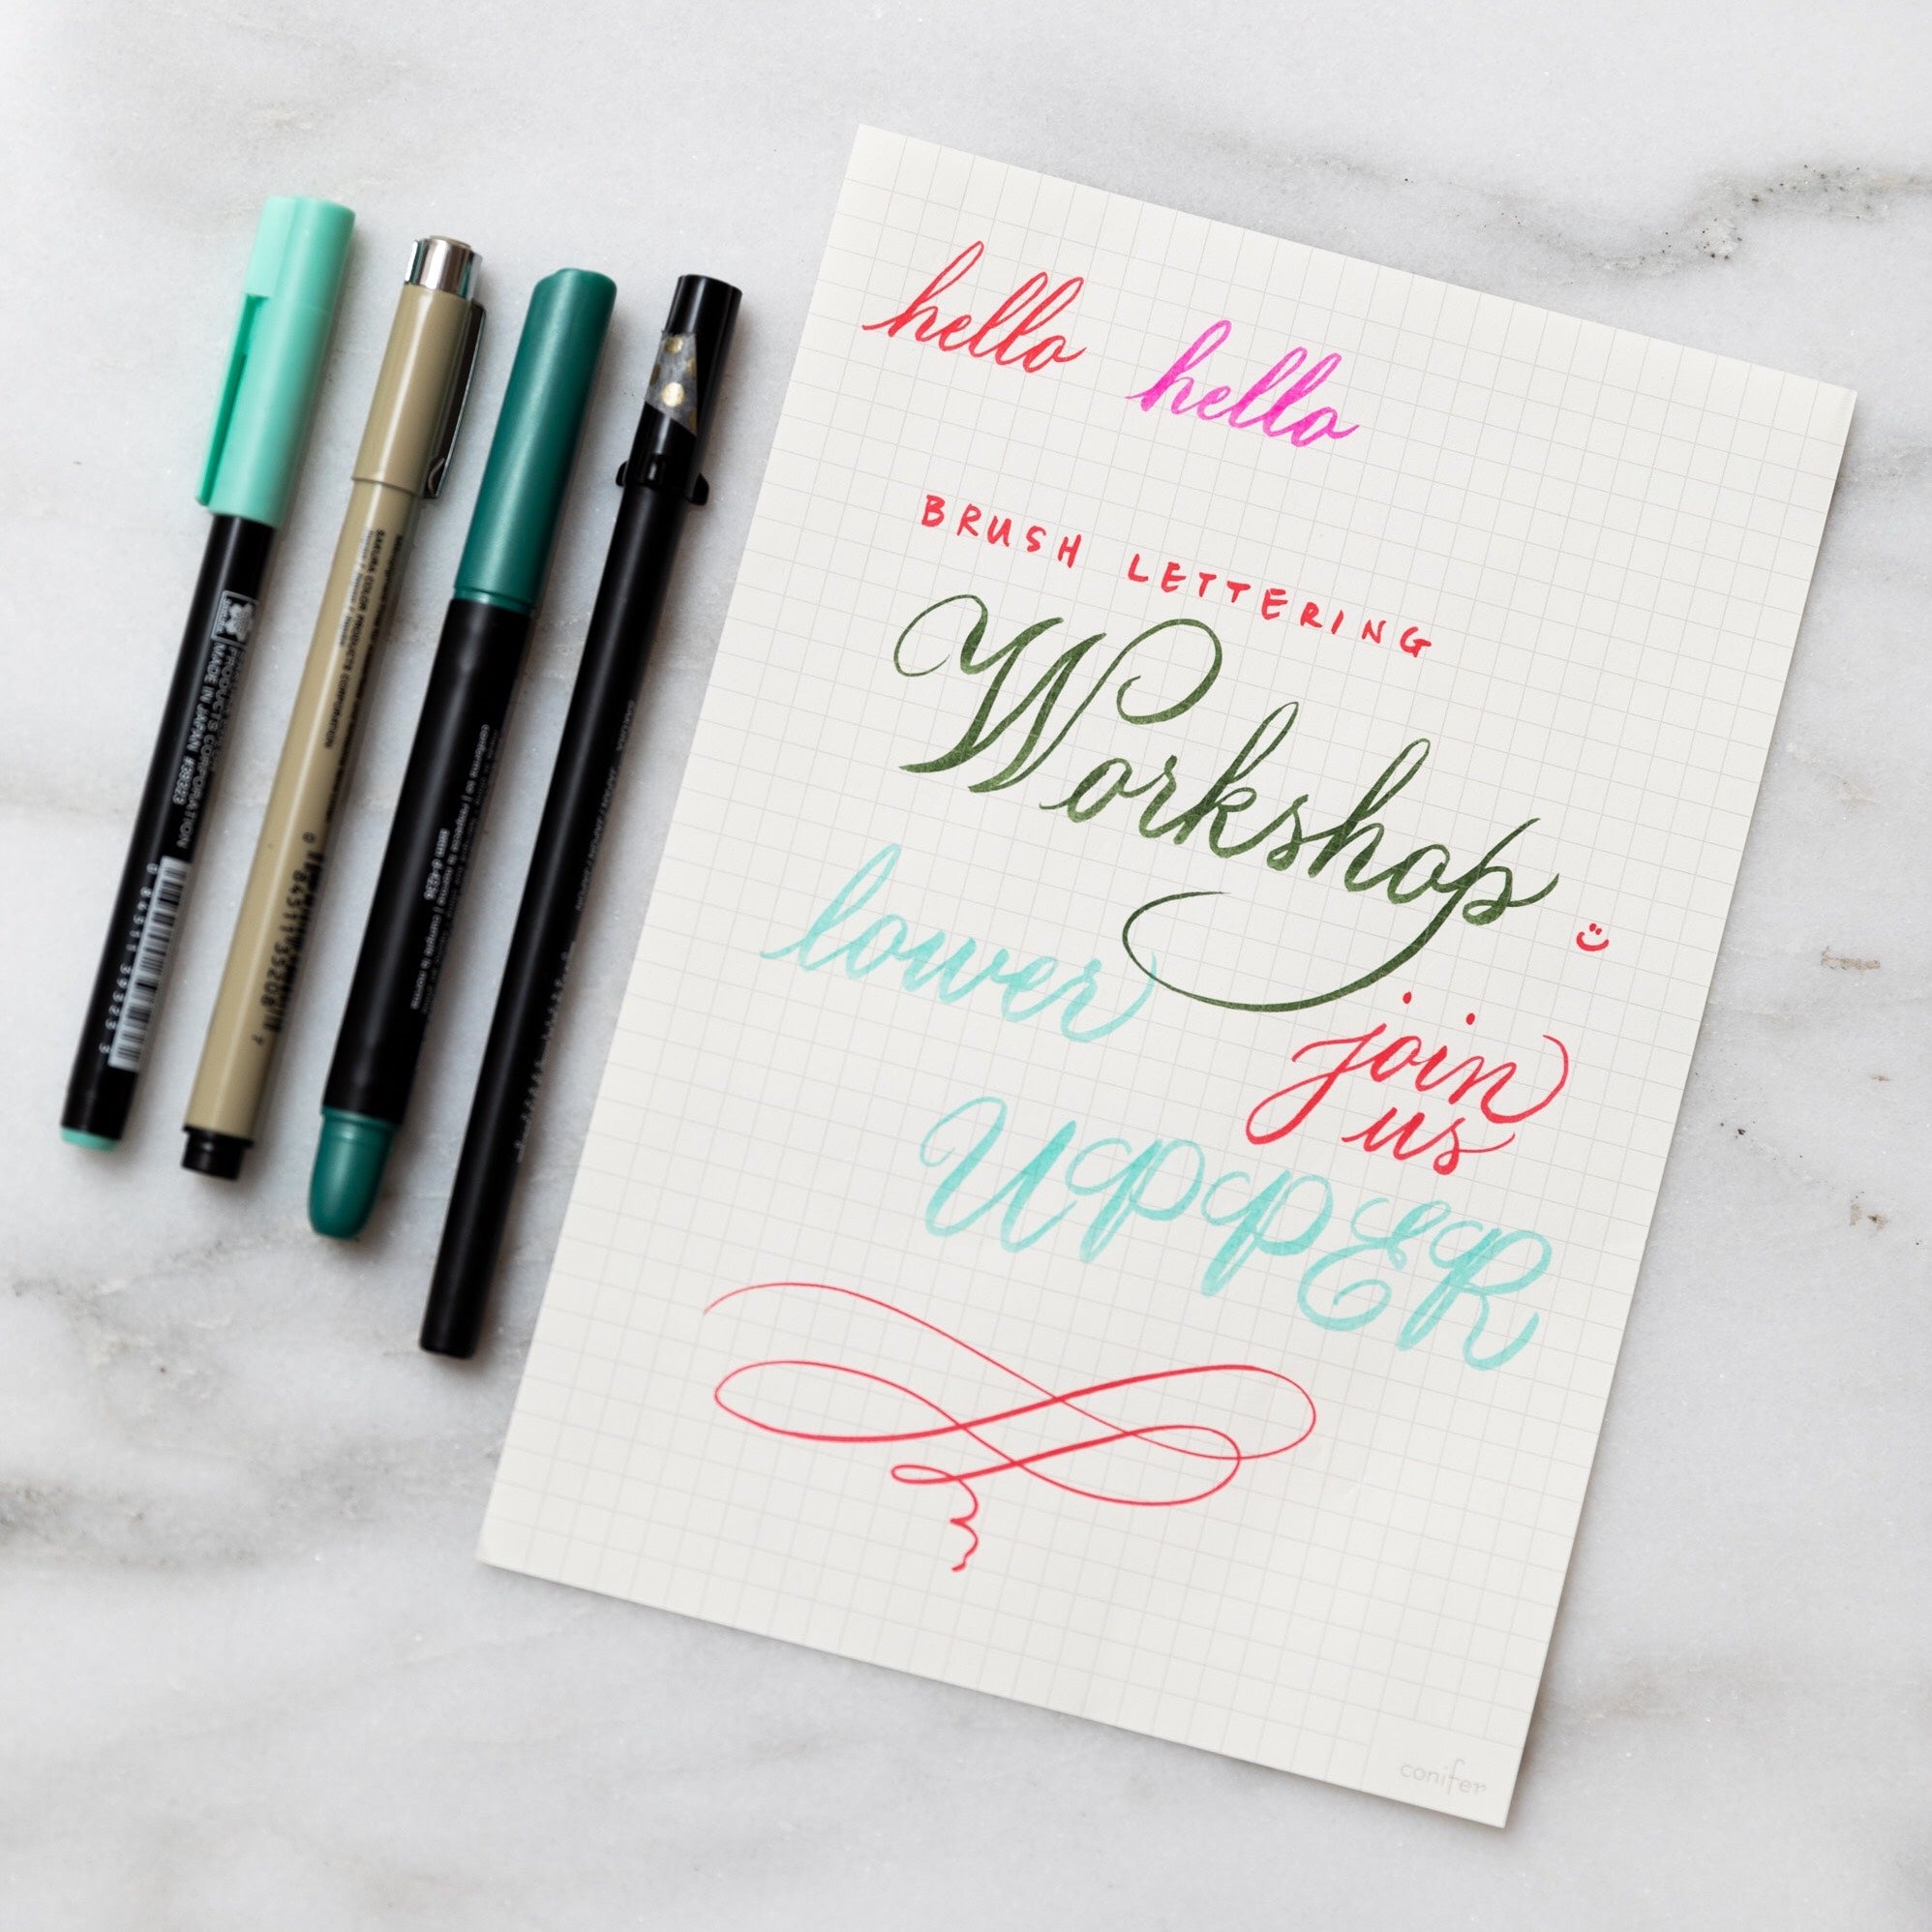 hello hello
BRUSH LETTERING
Workshop
lower
join
us
UPPER
conifer
PRODUCTS CORPORATION
MADE IN JAPAN #38323
SAKURA COLOR PRODUCTS CORPORATION